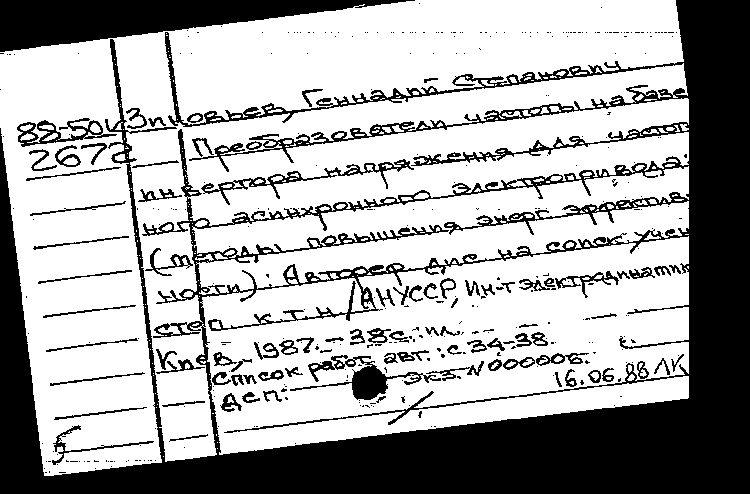 88-50к Зиновьев, Геннадий Степанович
2672 Преобразователи частоты на базе
инвертора напряжения для частот
ного асинхронного электропривода:
(методы повышения энерг. эффектив-
ности): Автореф дис на соиск учен
степ. к.т.н. / АНУССР, Ин-т электродинамик
Киев, 1987. - 38с.: ил.
Список работ авт.: с. 34-38.
Дсп: Экз. N 000006.
16.06.88 ЛК
5